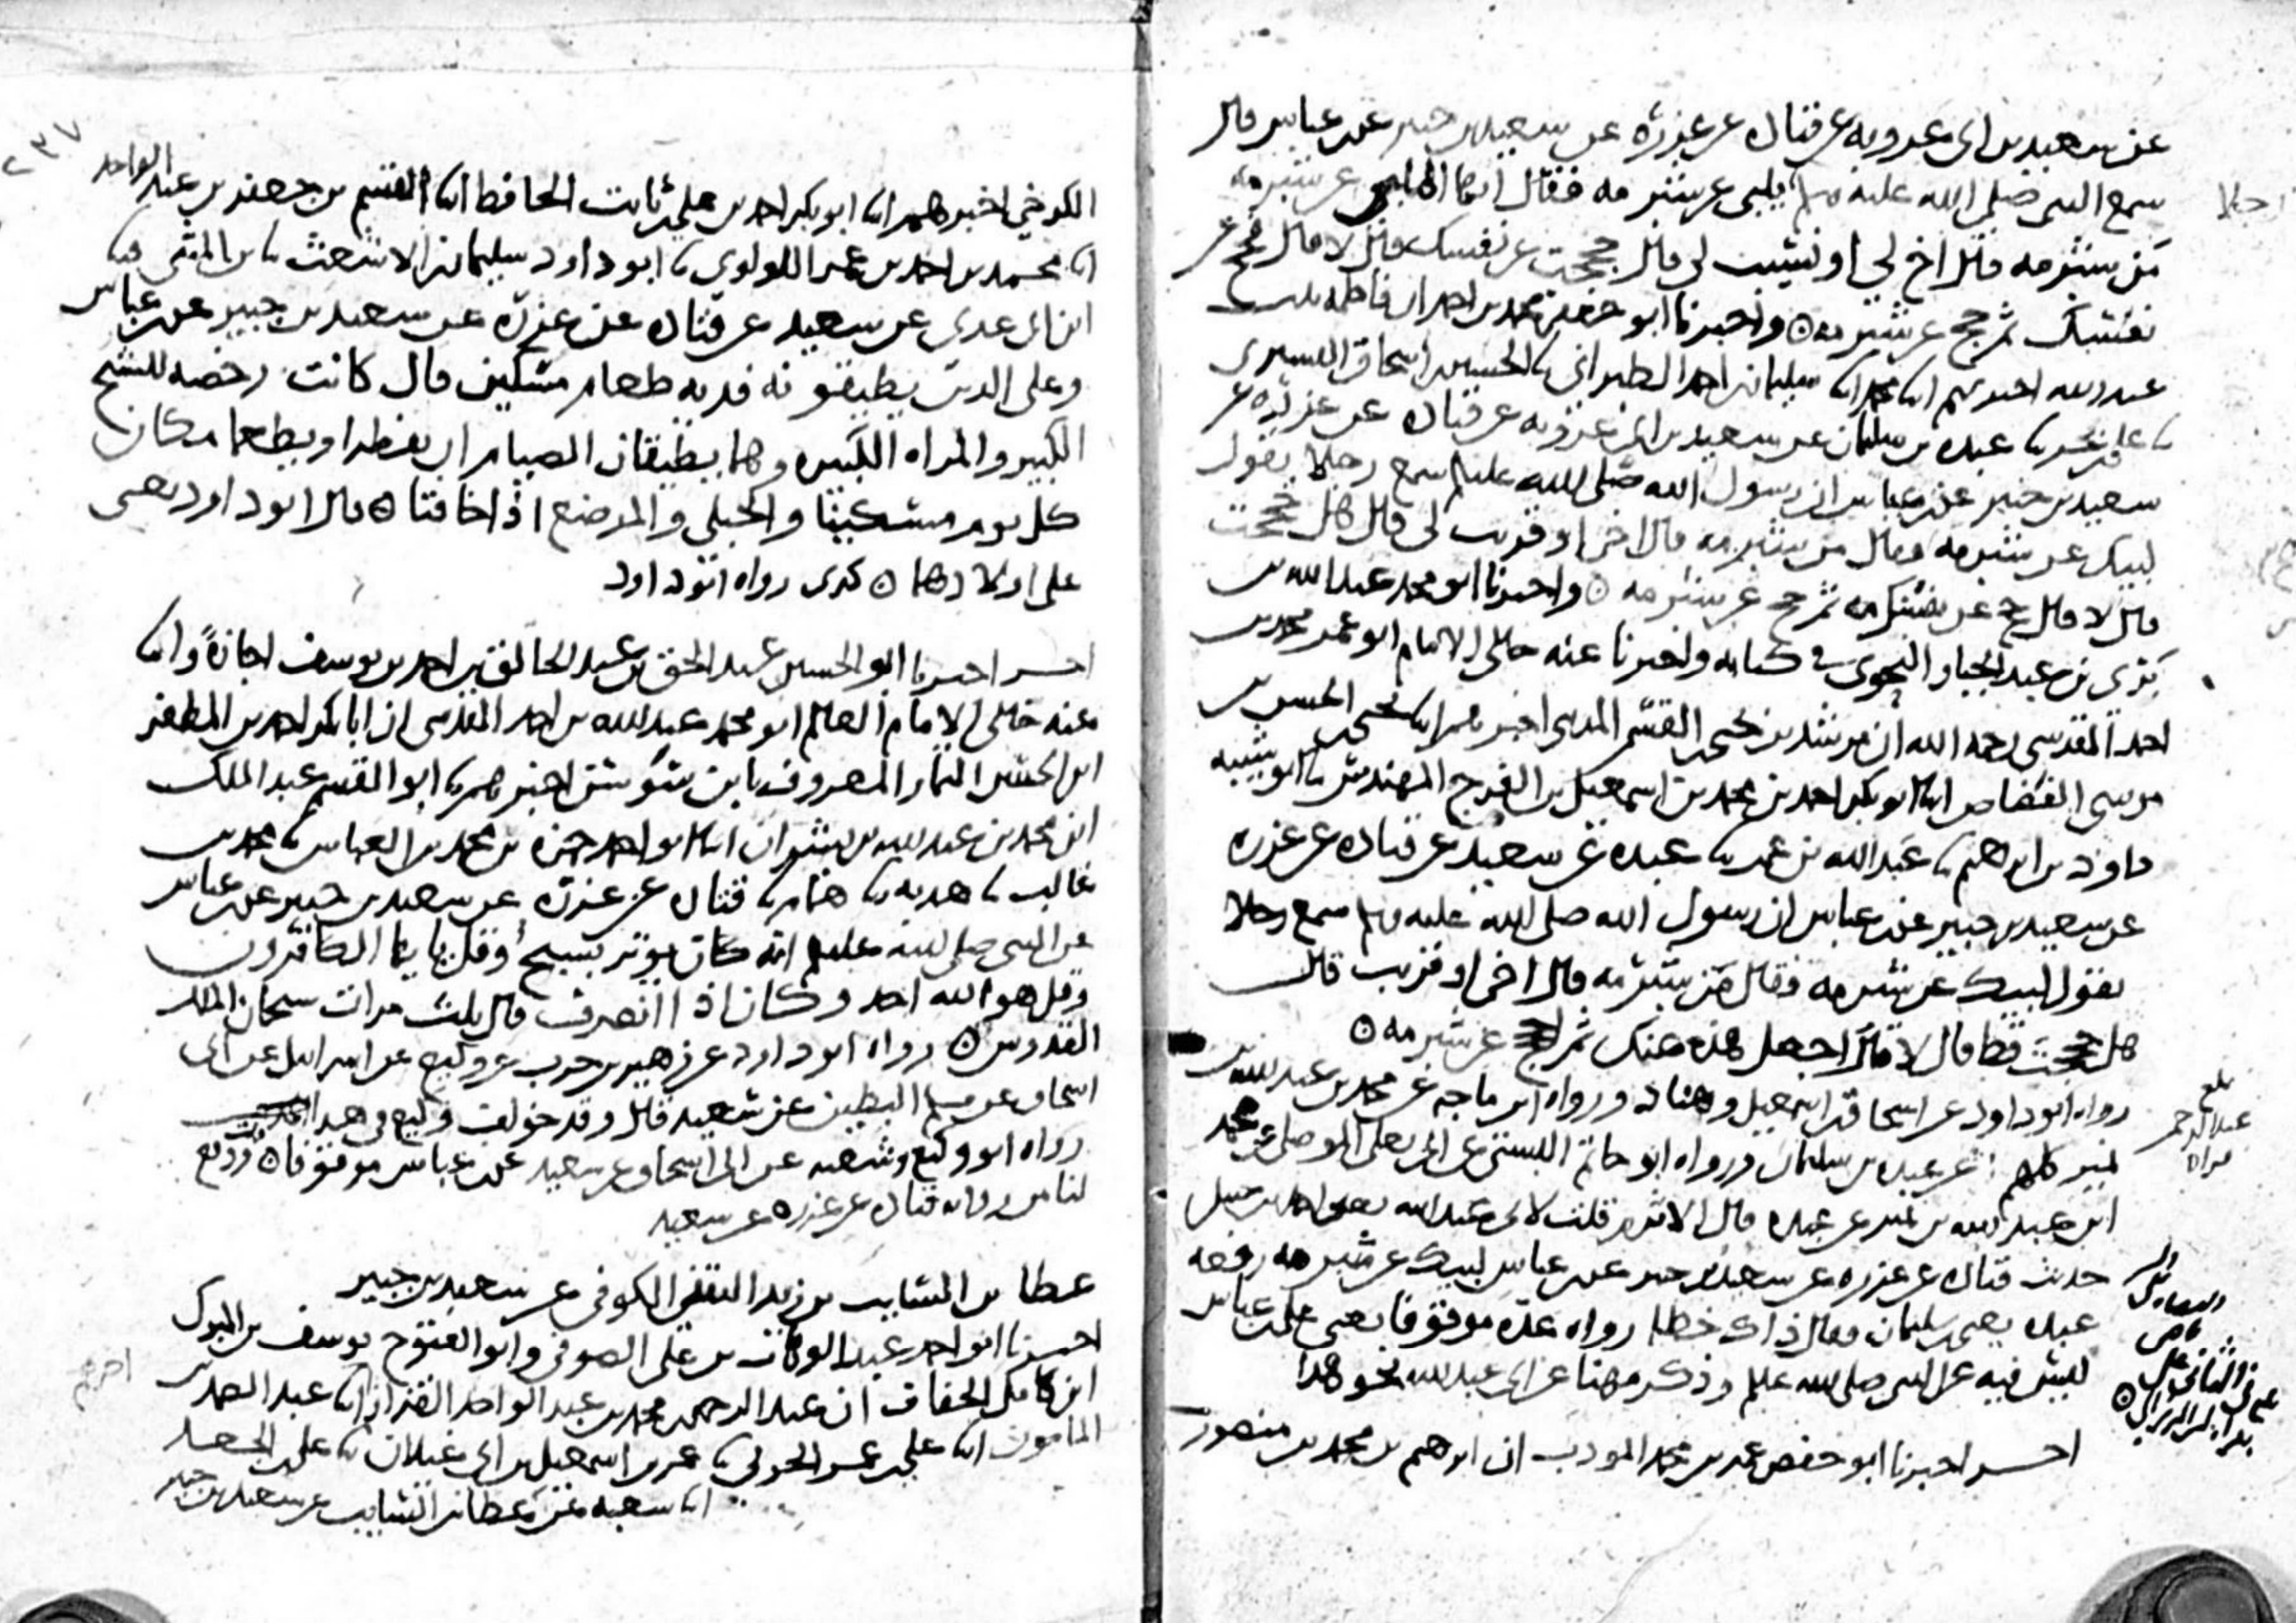 عن سعيد بن ابي عروبه عن قتاده عن عزره عن سعيد بن جبير عن بن عباس قال
سمع النبي صلى الله عليه وسلم يلبي عن شبرمه فقال ايها الملبي عن شبرمه
من شبرمه قال اخ لي او نسيب لي قال حججت عن نفسك قال لا قال فحج عن
نفسك ثم حج عن شبرمه ۞ واخبرنا ابو جعفر محمد بن احمد ان فاطمه بنت
عبد الله اخبرتهم ابنا محمد ابنا سليمان بن احمد الطبراني نا الحسين بن اسحاق التستري
نا علي بن بحر نا عبده بن سليمان عن سعيد بن ابي عروبه عن قتاده عن عزره عن
سعيد بن جبير عن بن عباس ان رسول الله صلى الله عليه وسلم سمع رجلا يقول
لبيك عن شبرمه وقال من شبرمه قال اخي او قريب لي قال هل حججت
قال لا قال حج عن نفسك ثم حج عن شبرمه ۞ واخبرنا ابو محمد عبد الله بن
بري بن عبد الجبار النحوي في كتابه واخبرنا عنه خالي الامام ابو عمر محمد بن
احمد المقدسي رحمه الله ان مرشد بن يحيى بن القسم المديني اخبرهم ابنا
ابنا ابو بكر احمد بن محمد بن اسمعيل بن الفرج المهندس نا ابو شيبه
داود بن ابراهيم نا عبد الله بن عمر نا عبده عن سعيد عن قتاده عن عزره
عن سعيد بن جبير عن بن عباس ان رسول الله صلى الله عليه وسلم سمع رجلا
يقول لبيك عن شبرمه فقال من شبرمه قال اخي او قريب قال
هل حججت قط قال لا قال اجعل هذه عنك ثم احج عن شبرمه ۞
رواه ابو داود عن اسحاق بن اسمعيل وهناد ورواه ابن ماجه عن محمد بن عبد الله بن
نمير كلهم عن عبده بن سليمان ورواه ابو حاتم البستي عن ابي يعلى الموصلي عن محمد
ابن عبد الله بن نمير عن عبده قال الاثرم قلت لابي عبد الله يعني احمد بن حنبل
حديث قتاده عن عزره عن سعيد بن جبير عن بن عباس لبيك عن شبرمه رفعه
عبده يعني بن سليمان فقال ذاك خطا رواه عده موقوفا يعني على بن عباس
ليس فيه عن النبي صلى الله عليه وسلم وذكر مهنا عن ابي عبد الله نحو هذا
اخر اخبرنا ابو حفص عمر بن محمد المودب ان ابرهيم بن محمد بن منصور
رجلا
بلغ
عبد الرحمن
قراه
٢٣٧
الكرخي اخبرهم ابنا ابو بكر احمد بن علي بن ثابت الحافظ ابنا القسم بن جعفر بن عبد الواحد
ابنا محمد بن احمد بن عمر اللولوي نا ابو داود سليمان بن الاشعث نا بن المثنى نا
ابن ابي عدي عن سعيد عن قتاده عن عزره عن سعيد بن جبير عن بن عباس
وعلى الذين يطيقونه فديه طعام مسكين قال كانت رخصه للشيخ
الكبير والمراه الكبيره وهما يطيقان الصيام ان يفطرا ويطعما مكان
كل يوم مسكينا والحبلى والمرضع اذا خافتا ۞ قال ابو داود يعني
على اولادهما ۞ كذى رواه ابو داود
اخر اخبرنا ابو الحسين عبد الحق بن عبد الخالق بن احمد بن يوسف اجازةً وابنا
عنه خالي الامام العالم ابو محمد عبد الله بن احمد المقدسي ان ابا بكر احمد بن المظفر
ابن الحسين التمار المعروف بابن سوسن اخبرهم نا ابو القسم عبد الملك
ابن محمد بن عبد الله بن بشران ابنا ابو احمد حمزه بن محمد بن العباس نا محمد بن
غالب نا هدبه نا همام نا قتاده عن عزره عن سعيد بن جبير عن بن عباس
عن النبي صلى الله عليه وسلم انه كان يوتر بسبح وقل يا ايها الكافرون
وقل هو الله احد وكان اذا انصرف قال ثلث مرات سبحان الملك
القدوس ۞ رواه ابو داود عن زهير بن حرب عن وكيع عن اسرايل عن ابي
اسحاق عن مسلم البطين عن سعيد قال وقد خولف وكيع في هذا الحديث
رواه ابو وكيع وشعبه عن ابي اسحاق عن سعيد عن بن عباس موقوفا ۞ وقع
لنا من روايه قتاده عن عزره عن سعيد
عطا بن السايب بن زيد الثقفي الكوفي عن سعيد بن جبير
اخبرنا ابو احمد عبد الوهاب بن علي الصوفي وابو الفتوح يوسف بن المبارك
ابن كامل الخفاف ان عبد الرحمن بن محمد بن عبد الواحد القزاز ابنا عبد الصمد بن
المامون ابنا علي بن عمر الحربي نا عمر بن اسمعيل بن ابي غيلان نا علي بن الجعد
ابنا شعبه عن عطا بن السايب عن سعيد بن جبير
اخبرهم